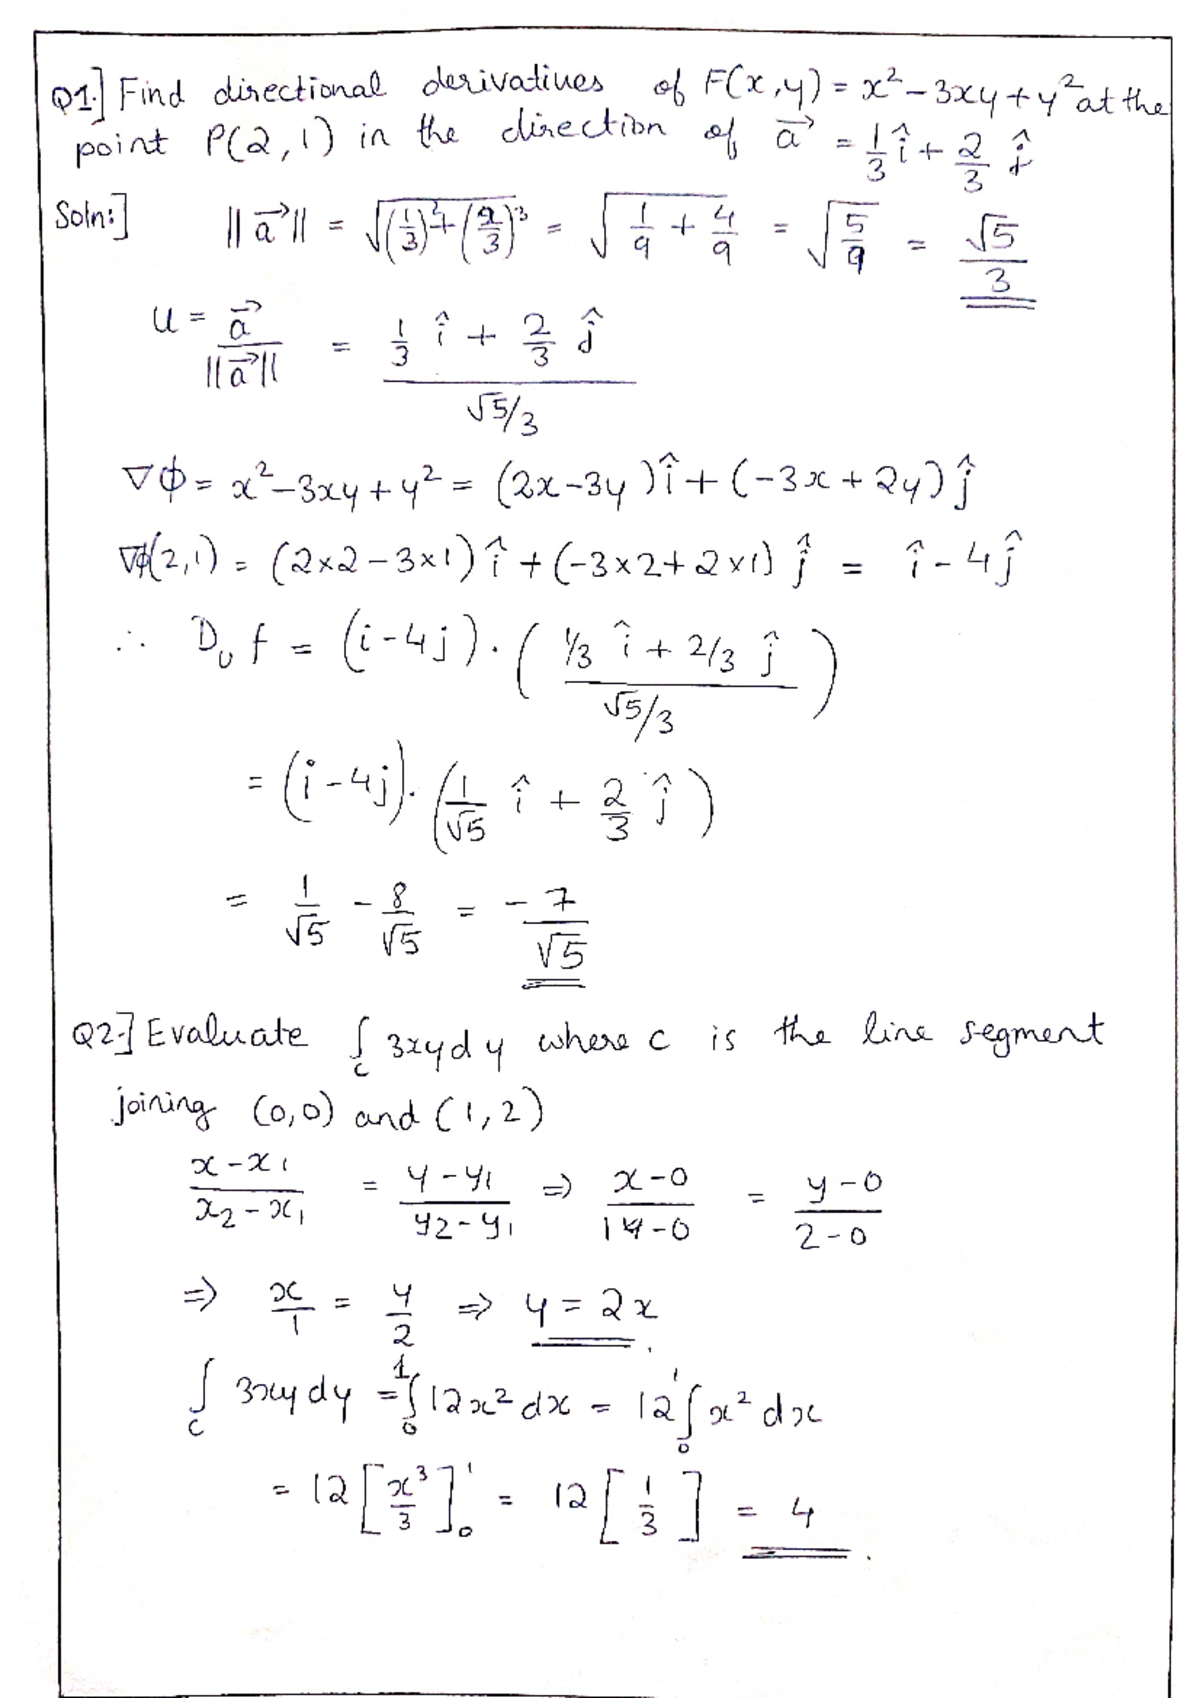 Q1.] Find directional derivatives of F(x,y) = x² - 3xy + y² at the
point P(2,1) in the direction of a⃗ = 1/3 î + 2/3 ĵ
Soln:] ||a⃗|| = √((1/3)² + (2/3)³) = √(1/9 + 4/9) = √(5/9) = √5/3
u = a⃗/||a⃗|| = (1/3 î + 2/3 ĵ)/(√5/3)
∇ϕ = x² - 3xy + y² = (2x - 3y)î + (-3x + 2y)ĵ
∇ϕ(2,1) = (2×2 - 3×1)î + (-3×2 + 2×1)ĵ = î - 4ĵ
∴ D_u f = (i - 4j) . ((1/3 î + 2/3 ĵ)/(√5/3))
= (i - 4j) . (1/√5 î + 2/3 ĵ)
= 1/√5 - 8/√5 = -7/√5
Q2.] Evaluate ∫_c 3xy dy where c is the line segment
joining (0,0) and (1,2)
(x - x₁)/(x₂ - x₁) = (y - y₁)/(y₂ - y₁) ⇒ (x - 0)/(1 - 0) = (y - 0)/(2 - 0)
⇒ x/1 = y/2 ⇒ y = 2x.
∫_c 3xy dy = ∫₀¹ 12x² dx = 12 ∫₀¹ x² dx
= 12 [x³/3]₀¹ = 12 [1/3] = 4.